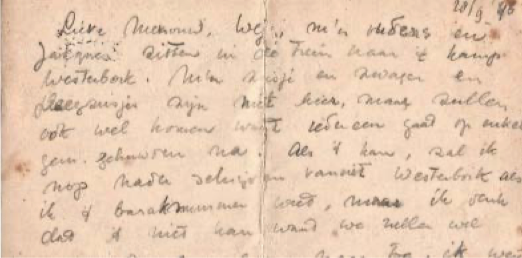 28/9 '43
Lieve Mevrouw. Wij, m'n ouders en
Jacques zitten in de trein naar 't kamp
Westerbork. M'n zusje en zwager en
pleegzusje zijn niet hier, maar zullen
ook wel komen want iedereen gaat op enkele
gem. gehuwden na. Als 't kan, zal ik
nog nader schrijven vanuit Westerbork als
ik 't baraknummer weet, maar ik denk
dat 't niet kan want we zullen wel
ik